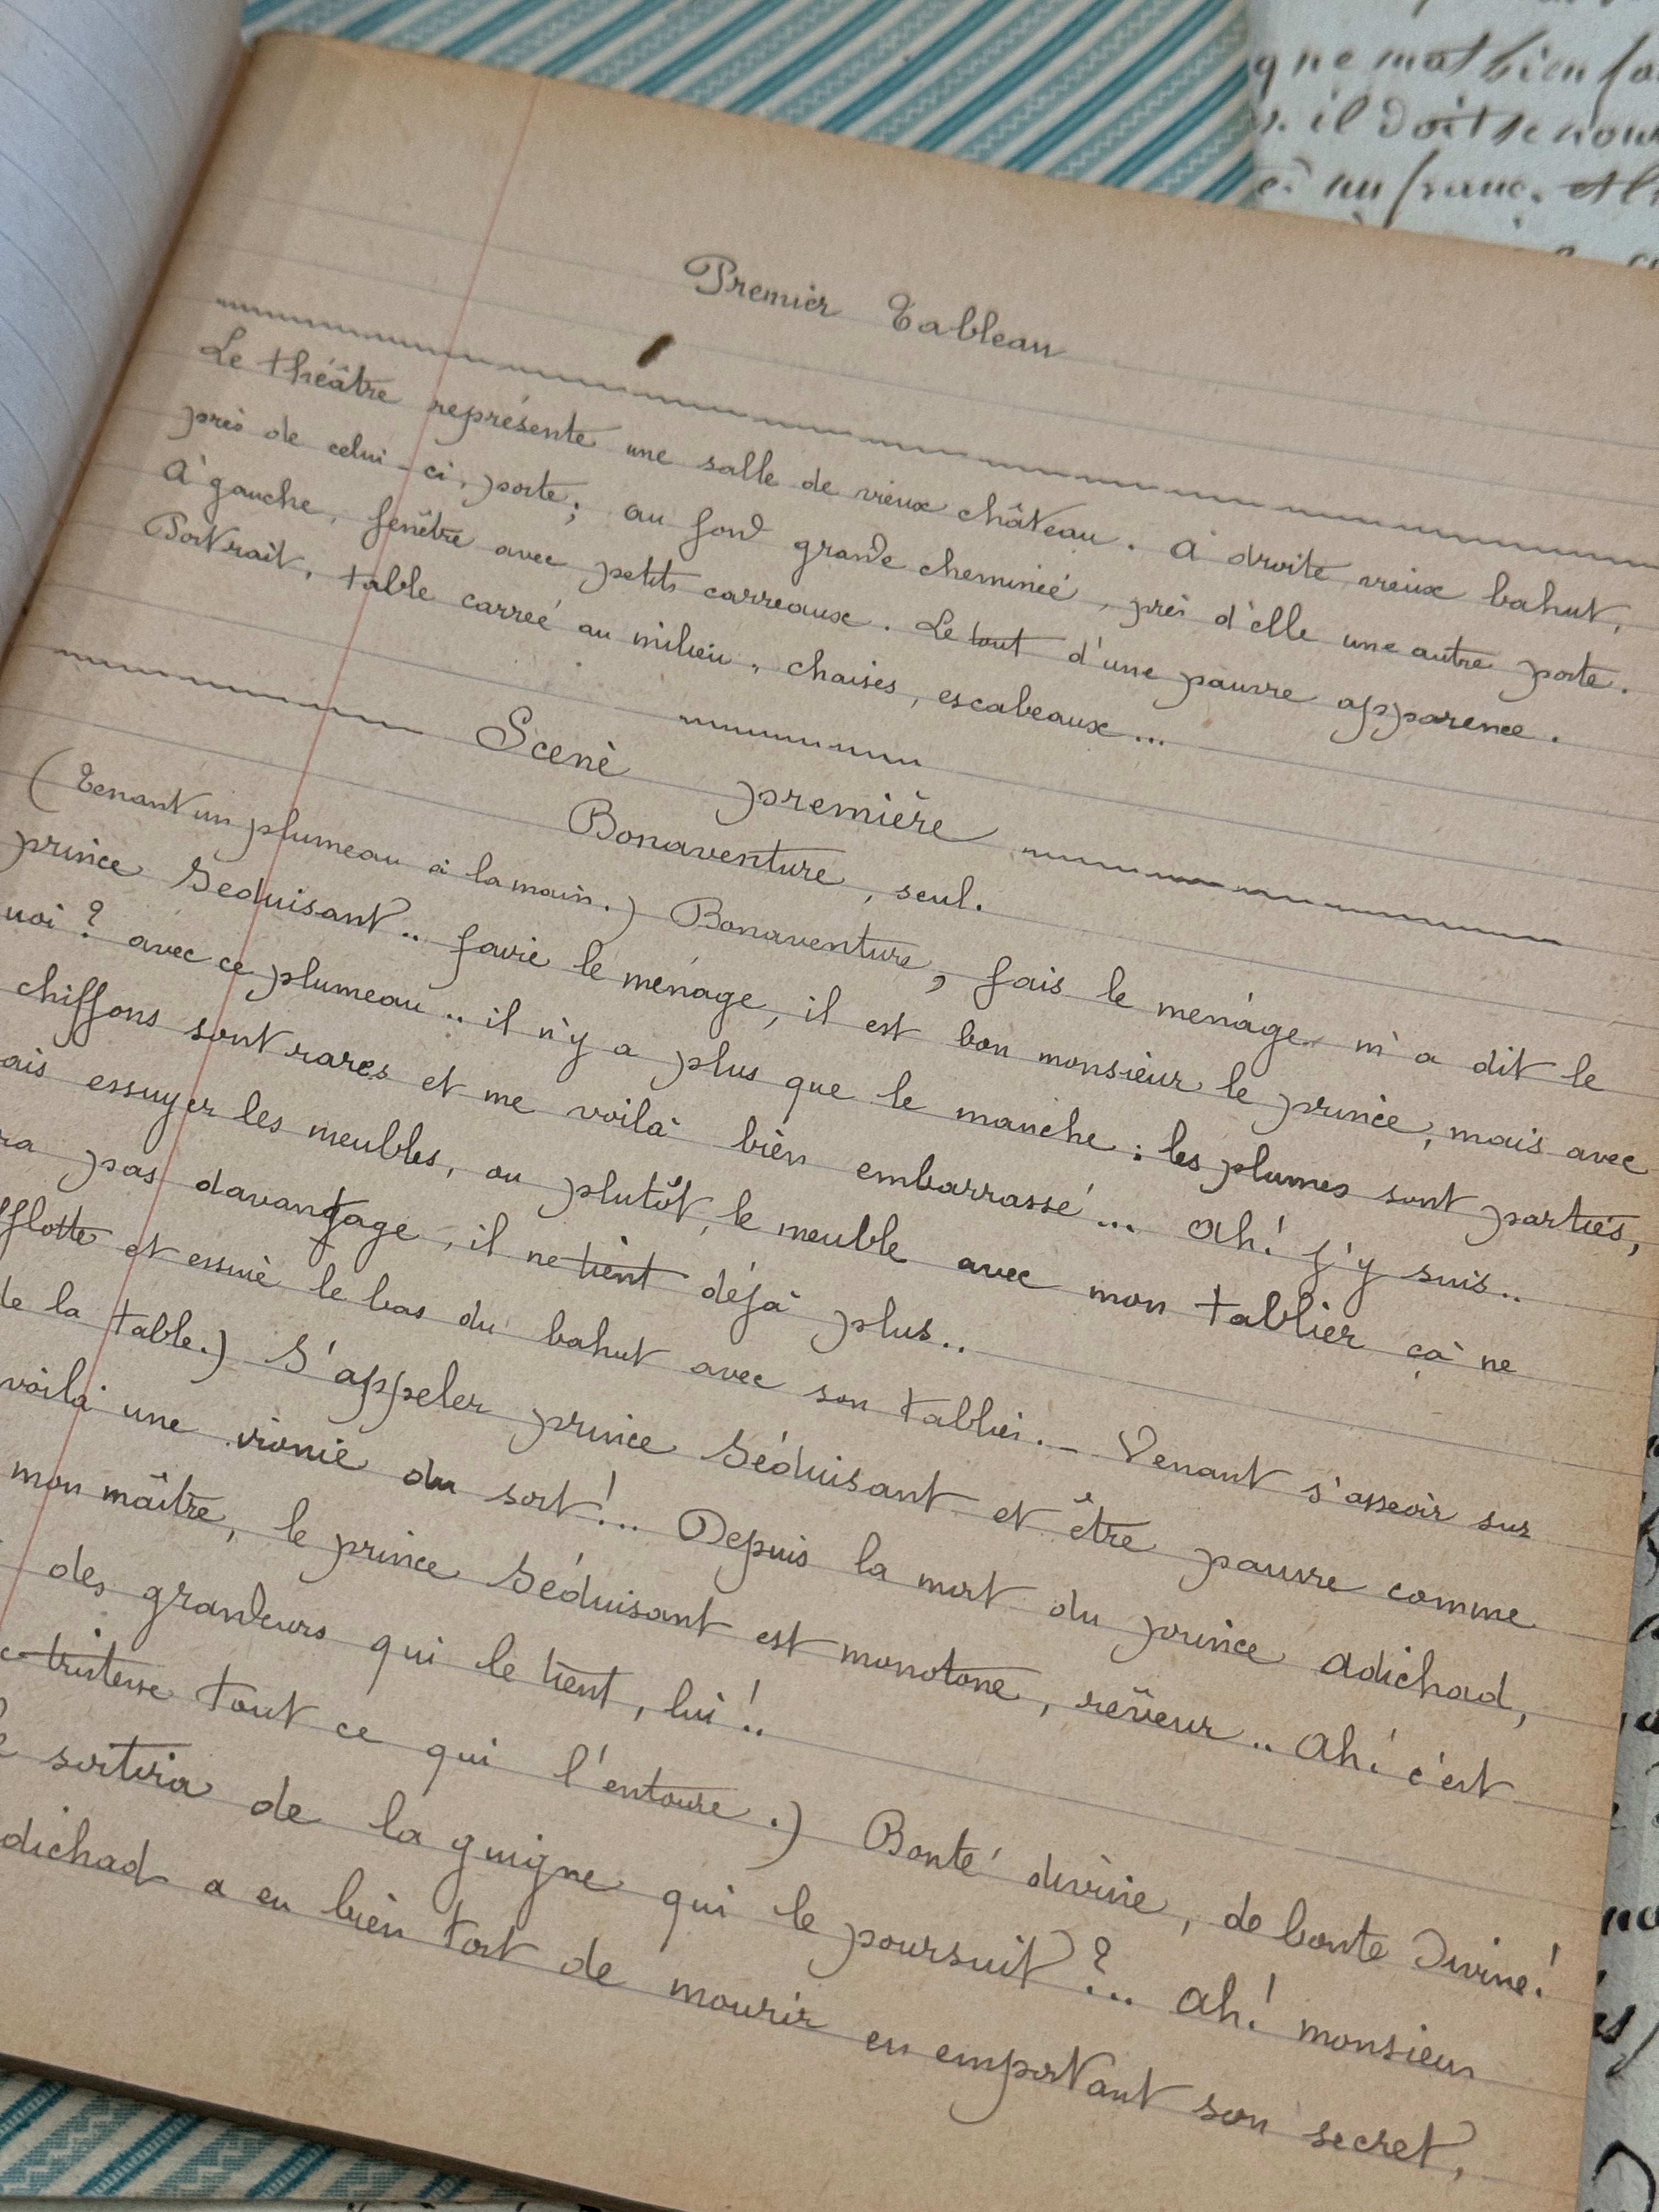 Premier Tableau
Le théâtre représente une salle de vieux château. A droite vieux bahut,
près de celui-ci, porte ; au fond grande cheminée, près d'elle une autre porte.
A gauche, fenêtre avec petits carreaux. Le tout d'une pauvre apparence.
Portrait, table carrée au milieu, chaises, escabeaux ...
Scène première
Bonaventure, seul.
(Tenant un plumeau à la main.) Bonaventure, fais le ménage m'a dit le
prince Séduisant .. faire le ménage, il est bon monsieur le prince, mais avec
uoi ? avec ce plumeau .. il n'y a plus que le manche : les plumes sont parties,
chiffons sont rares et me voilà bien embarrassé ... Ah ! j'y suis ..
ais essuyer les meubles, ou plutôt, le meuble avec mon tablier ça ne
ra pas davantage, il ne tient déjà plus ..
fflotte et essuie le bas du bahut avec son tablier. - Venant s'asseoir sur
de la table.) S'appeler prince Séduisant et être pauvre comme
voilà une ironie du sort ! .. Depuis la mort du prince Adichad,
mon maître, le prince Séduisant est monotone, rêveur .. Ah ! c'est
des grandeurs qui le tient, lui ! ..
tristesse tout ce qui l'entoure.) Bonté divine, de bonté Divine !
sortira de la guigne qui le poursuit ? ... Ah ! monsieur
dichad a eu bien tort de mourir en emportant son secret,
que mot bien
il doit se
un franc.